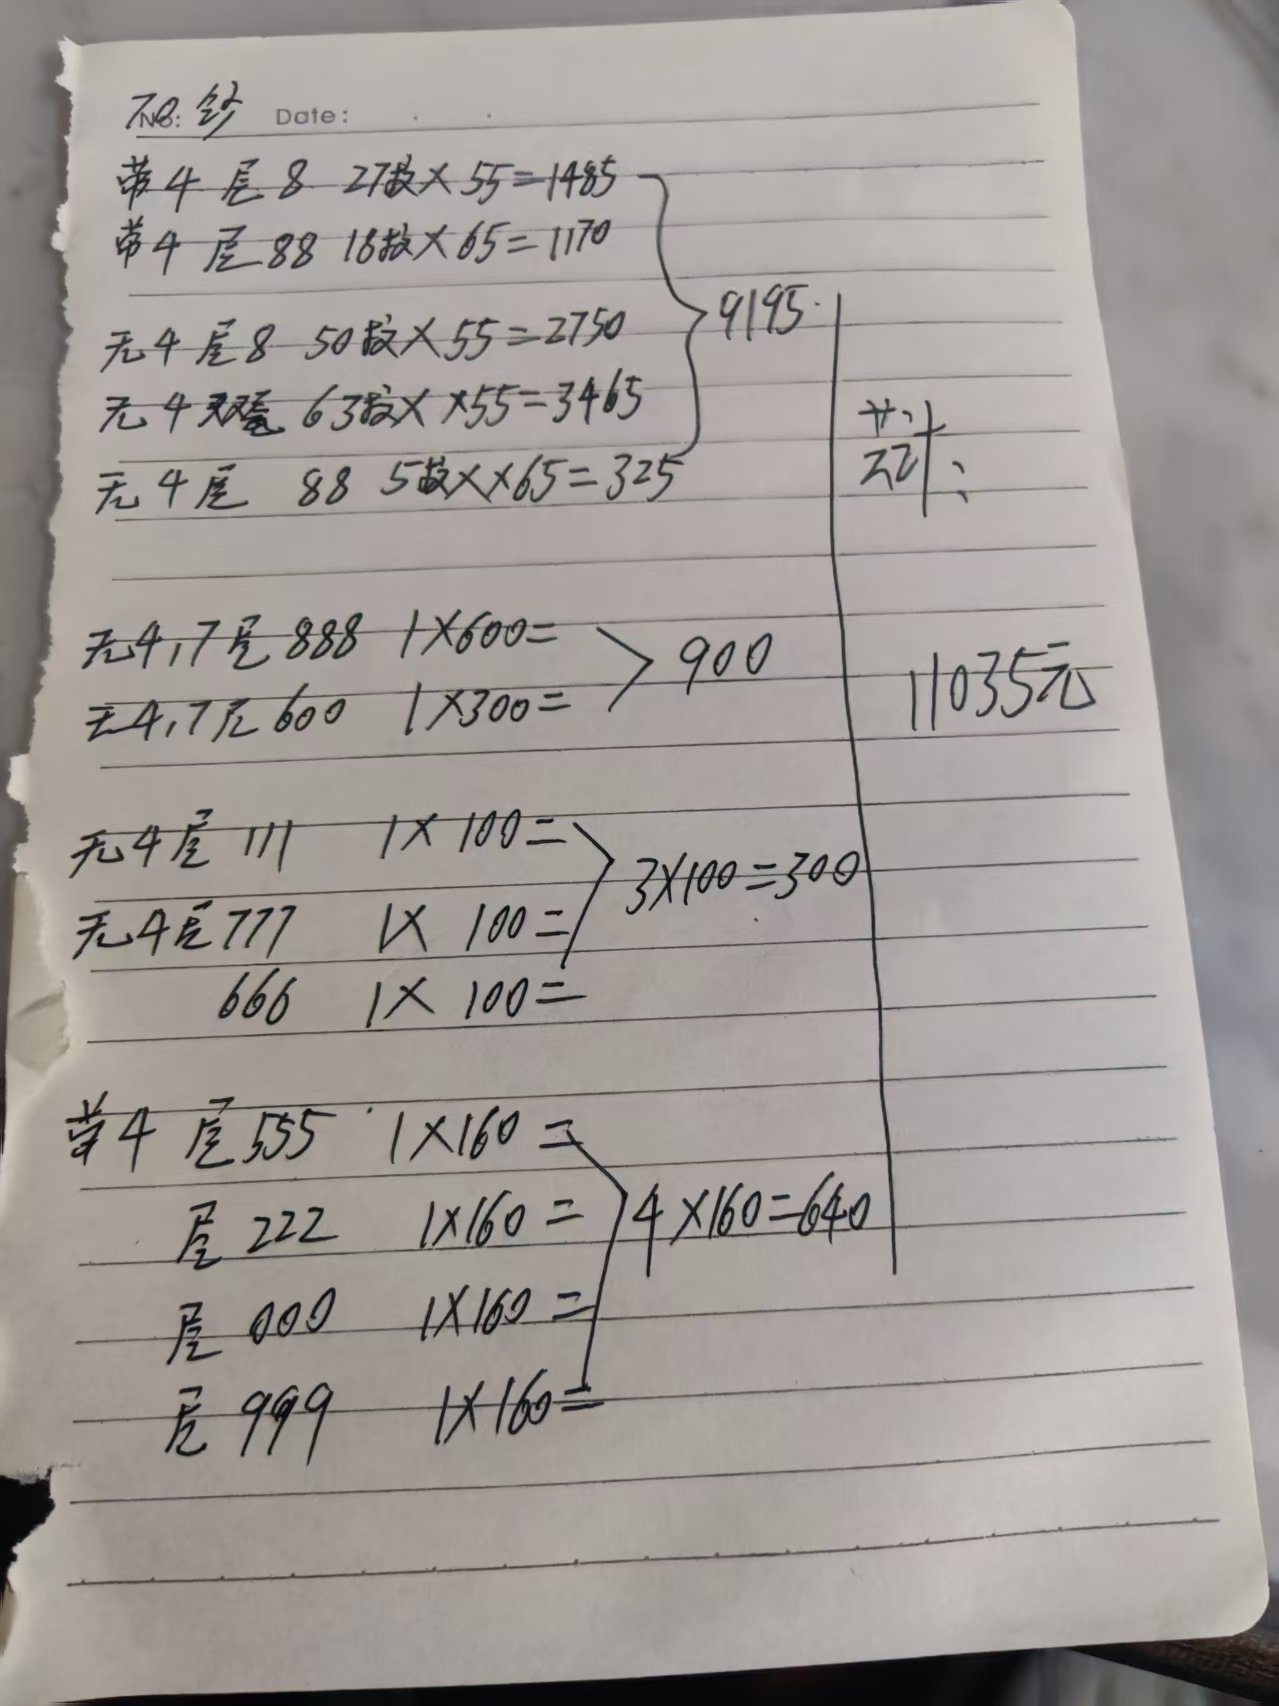 No: 70钞 Date:
带4 尾8 27枚×55=1485
带4 尾88 18枚×65=1170
无4尾8 50枚×55=2750
9195
无4双尾 63枚××55=3465
无4尾 88 5枚××65=325
共计:
无4,7尾888 1×600=
无4,7尾600 1×300=
900
11035元
无4尾111 1×100=
无4尾777 1×100=
666 1×100=
3×100=300
带4 尾555 1×160=
尾222 1×160=
尾000 1×160=
尾999 1×160=
4×160=640